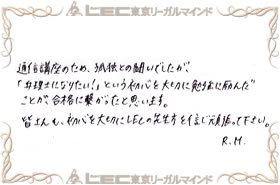 LEC東京リーガルマインド LEC東京リーガルマインド
通信講座のため、孤独との闘いでしたが、
「弁理士になりたい！」という初心を大切に勉強に励んだ
ことが、合格に繋がったと思います。
皆さんも、初心を大切にLECの先生方を信じ頑張って下さい。
R.M.